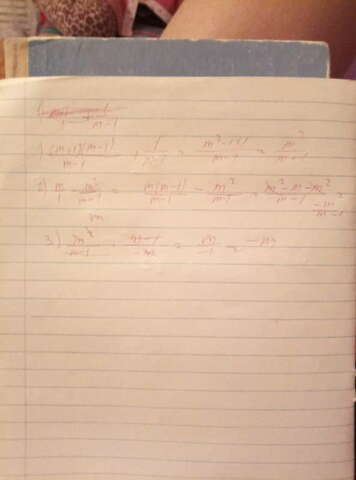 1) (m+1)(m-1)/m-1 + 1/m-1 = m²-1+1/m-1 = m²/m-1
2) m/1 - m²/m-1 = m(m-1)/m-1 - m²/m-1 = m²-m-m²/m-1 = -m/m-1
3) m²/m-1 · m-1/-m = m/-1 = -m